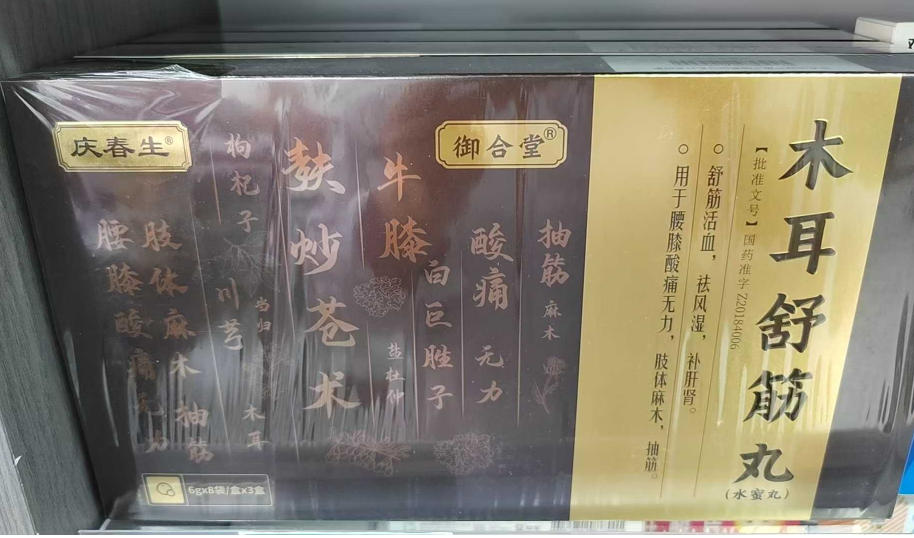 庆春生®
御合堂®
木耳舒筋丸
(水蜜丸)
【批准文号】国药准字Z20184006
舒筋活血，祛风湿，补肝肾。
用于腰膝酸痛无力，肢体麻木，抽筋。
抽筋
麻木
酸痛 无力
白巨胜子
牛膝
盐杜仲
麸炒苍术
枸杞子
当归
川芎
木耳
肢体麻木
抽筋
腰膝酸痛
无力
6gx8袋/盒x3盒